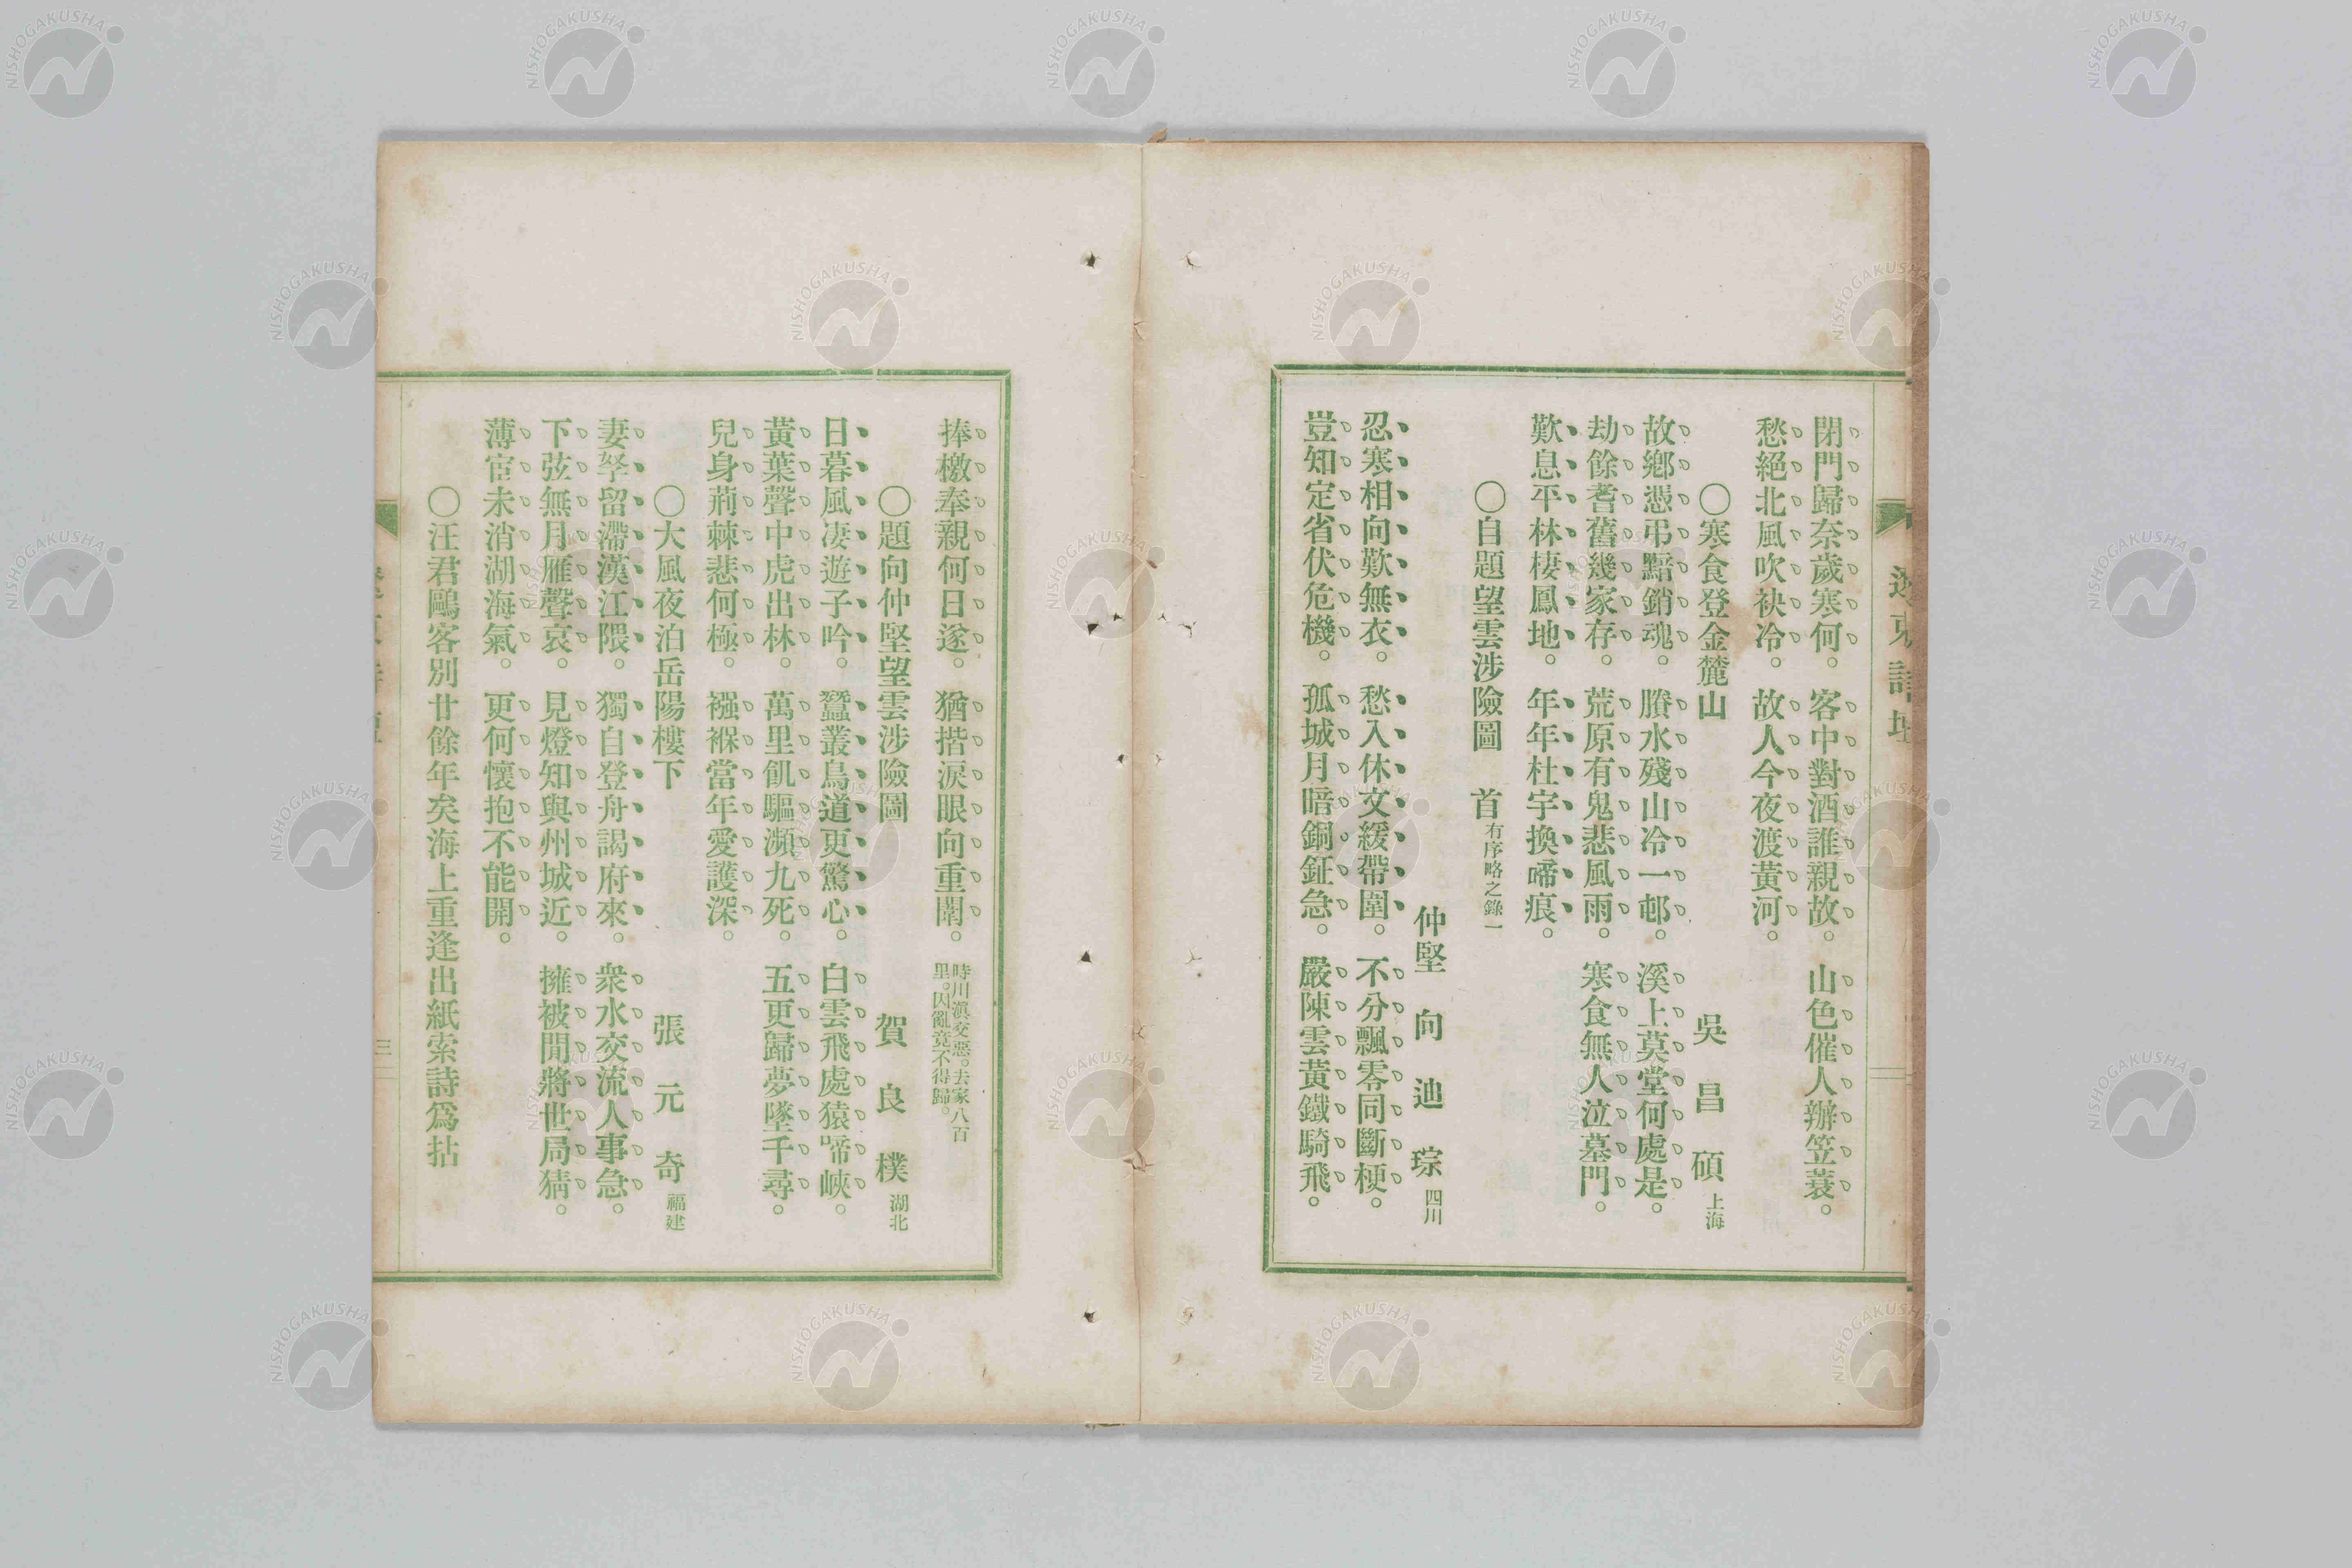 遼東詩壇
閉門歸奈歲寒何。客中對酒誰親故。山色催人辦笠蓑。
愁絕北風吹袂冷。故人今夜渡黃河。
〇寒食登金麓山　吳昌碩 上海
故鄉憑弔黯銷魂。賸水殘山冷一邨。溪上莫堂何處是。
劫餘耆舊幾家存。荒原有鬼悲風雨。寒食無人泣墓門。
歎息平林棲鳳地。年年杜宇換啼痕。
〇自題望雲涉險圖　首 有序略之錄一
仲堅　向迪琮 四川
忍寒相向歎無衣。愁入休文緩帶圍。不分飄零同斷梗。
豈知定省伏危機。孤城月暗銅鉦急。嚴陳雲黃鐵騎飛。
捧檄奉親何日遂。猶揩淚眼向重闈。時川滇交惡。去家八百
里。因亂竟不得歸。
〇題向仲堅望雲涉險圖　賀良樸 湖北
日暮風凄遊子吟。蠶叢鳥道更驚心。白雲飛處猿啼峽。
黃葉聲中虎出林。萬里飢驅瀕九死。五更歸夢墜千尋。
兒身荊棘悲何極。襁褓當年愛護深。
〇大風夜泊岳陽樓下　張元奇 福建
妻孥留滯漢江隈。獨自登舟謁府來。衆水交流人事急。
下弦無月雁聲哀。見燈知與州城近。擁被閒將世局猜。
薄宦未消湖海氣。更何懷抱不能開。
〇汪君鷗客別廿餘年矣海上重逢出紙索詩爲拈
三
NISHOGAKUSHA